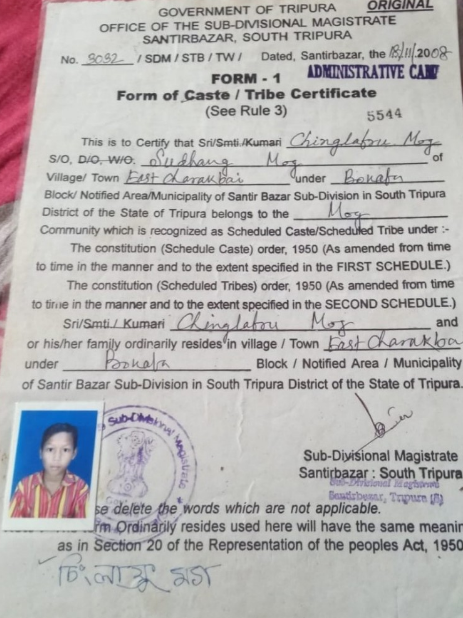 ORIGINAL
GOVERNMENT OF TRIPURA
OFFICE OF THE SUB-DIVISIONAL MAGISTRATE
SANTIRBAZAR, SOUTH TRIPURA
No. 3032 / SDM / STB / TW / Dated, Santirbazar, the 18/11/2008
ADMINISTRATIVE CAMP
FORM - 1
Form of Caste / Tribe Certificate
(See Rule 3)
5544
This is to Certify that Sri/Smti./Kumari Chinglafru Mog
S/O, D/O, W/O. Mog of
Village/ Town East Charakbai under Bokafa
Block/ Notified Area/Municipality of Santir Bazar Sub-Division in South Tripura
District of the State of Tripura belongs to the Mog
Community which is recognized as Scheduled Caste/Scheduled Tribe under :-
The constitution (Schedule Caste) order, 1950 (As amended from time
to time in the manner and to the extent specified in the FIRST SCHEDULE.)
The constitution (Scheduled Tribes) order, 1950 (As amended from time
to time in the manner and to the extent specified in the SECOND SCHEDULE.)
Sri/Smti./ Kumari Chinglafru Mog and
or his/her family ordinarily resides in village / Town East Charakbai
under Bokafa Block / Notified Area / Municipality
of Santir Bazar Sub-Division in South Tripura District of the State of Tripura.
Sub-Divisional Magistrate
Sub-Divisional Magistrate
Santirbazar : South Tripura
Sub-Divisional Magistrate
Santirbazar, Tripura (S)
se delete the words which are not applicable.
rm Ordinarily resides used here will have the same meanin
as in Section 20 of the Representation of the peoples Act, 1950
চিংলাফ্রু মগ